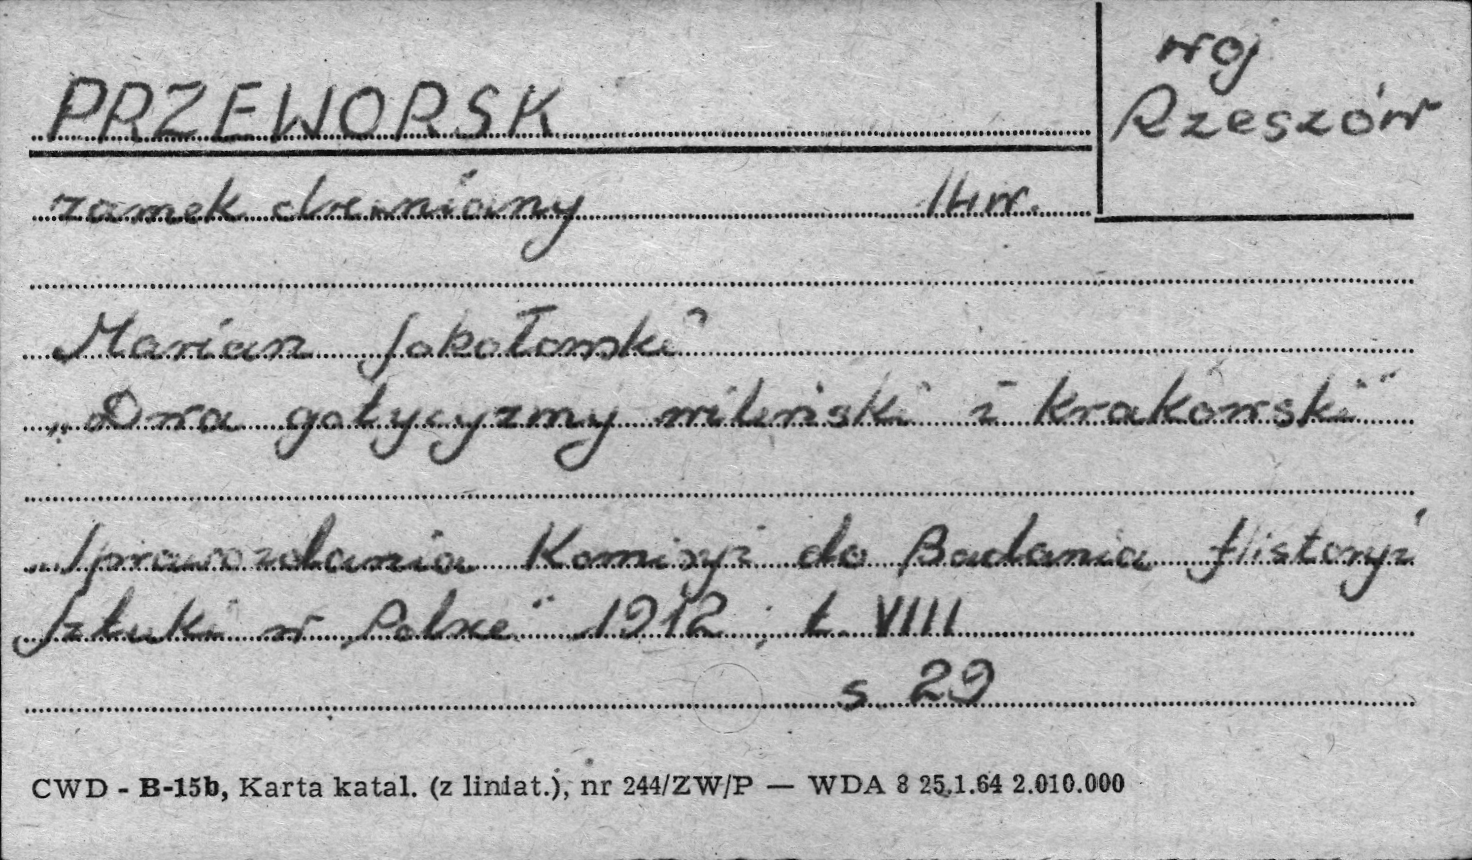 PRZEWORSK
woj
Rzeszów
zamek drewniany 14 w.
Marian Sokołowski
„Dwa gotycyzmy wileński i krakowski"
„Sprawozdania Komisyi do Badania Historyi
Sztuki w Polsce" 1912, t. VIII
s. 29
CWD - B-15b, Karta katal. (z liniat.), nr 244/ZW/P — WDA 8 25.1.64 2.010.000